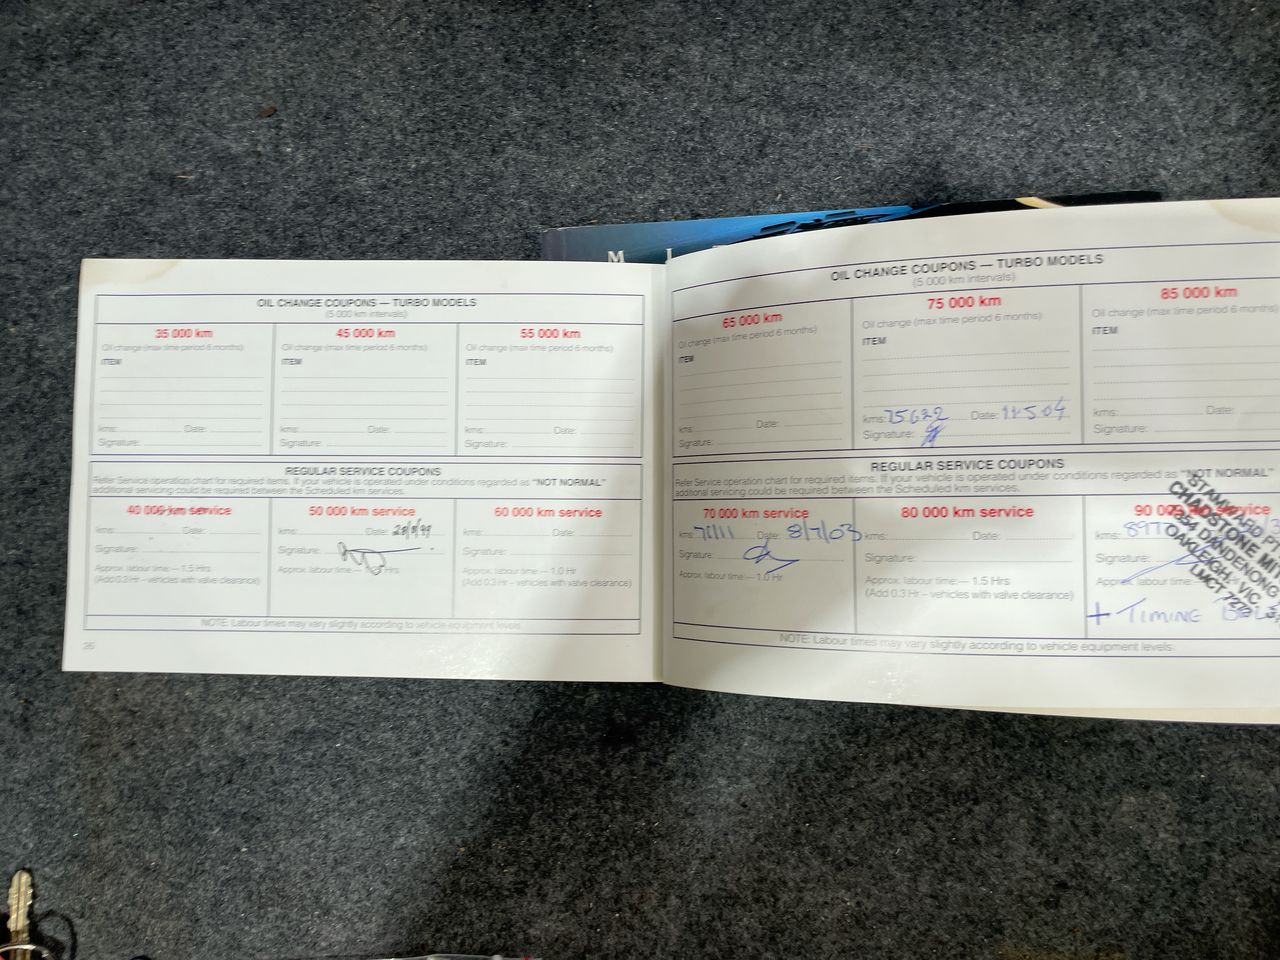 M I
OIL CHANGE COUPONS — TURBO MODELS
(5 000 km intervals)
35 000 km
Oil change (max time period 6 months)
ITEM
kms: Date:
Signature:
45 000 km
Oil change (max time period 6 months)
ITEM
kms: Date:
Signature:
55 000 km
Oil change (max time period 6 months)
ITEM
kms: Date:
Signature:
REGULAR SERVICE COUPONS
Refer Service operation chart for required items. If your vehicle is operated under conditions regarded as "NOT NORMAL"
additional servicing could be required between the Scheduled km services.
40 000 km service
kms: Date:
Signature:
Approx. labour time — 1.5 Hrs
(Add 0.3 Hr – vehicles with valve clearance)
50 000 km service
kms: Date:
Signature:
Approx. labour time — Hrs
60 000 km service
kms: Date:
Signature:
Approx. labour time — 1.0 Hr
(Add 0.3 Hr – vehicles with valve clearance)
NOTE: Labour times may vary slightly according to vehicle equipment levels.
26
OIL CHANGE COUPONS — TURBO MODELS
(5 000 km intervals)
65 000 km
Oil change (max time period 6 months)
ITEM
kms: Date:
Signature:
75 000 km
Oil change (max time period 6 months)
ITEM
kms: 75622 Date: 11.5.04
Signature:
85 000 km
Oil change (max time period 6 months)
ITEM
kms: Date:
Signature:
REGULAR SERVICE COUPONS
Refer Service operation chart for required items. If your vehicle is operated under conditions regarded as "NOT NORMAL"
additional servicing could be required between the Scheduled km services.
70 000 km service
kms: 71111 Date: 8/7/03
Signature:
Approx. labour time — 1.0 Hr
80 000 km service
kms: Date:
Signature:
Approx. labour time — 1.5 Hrs
(Add 0.3 Hr – vehicles with valve clearance)
90 000 km service
kms: 897
Signature:
Approx. labour time:
+ TIMING BEL
CHADSTONE MIT
DANDENONG
OAKLEIGH. VIC
LMCT
NOTE: Labour times may vary slightly according to vehicle equipment levels.